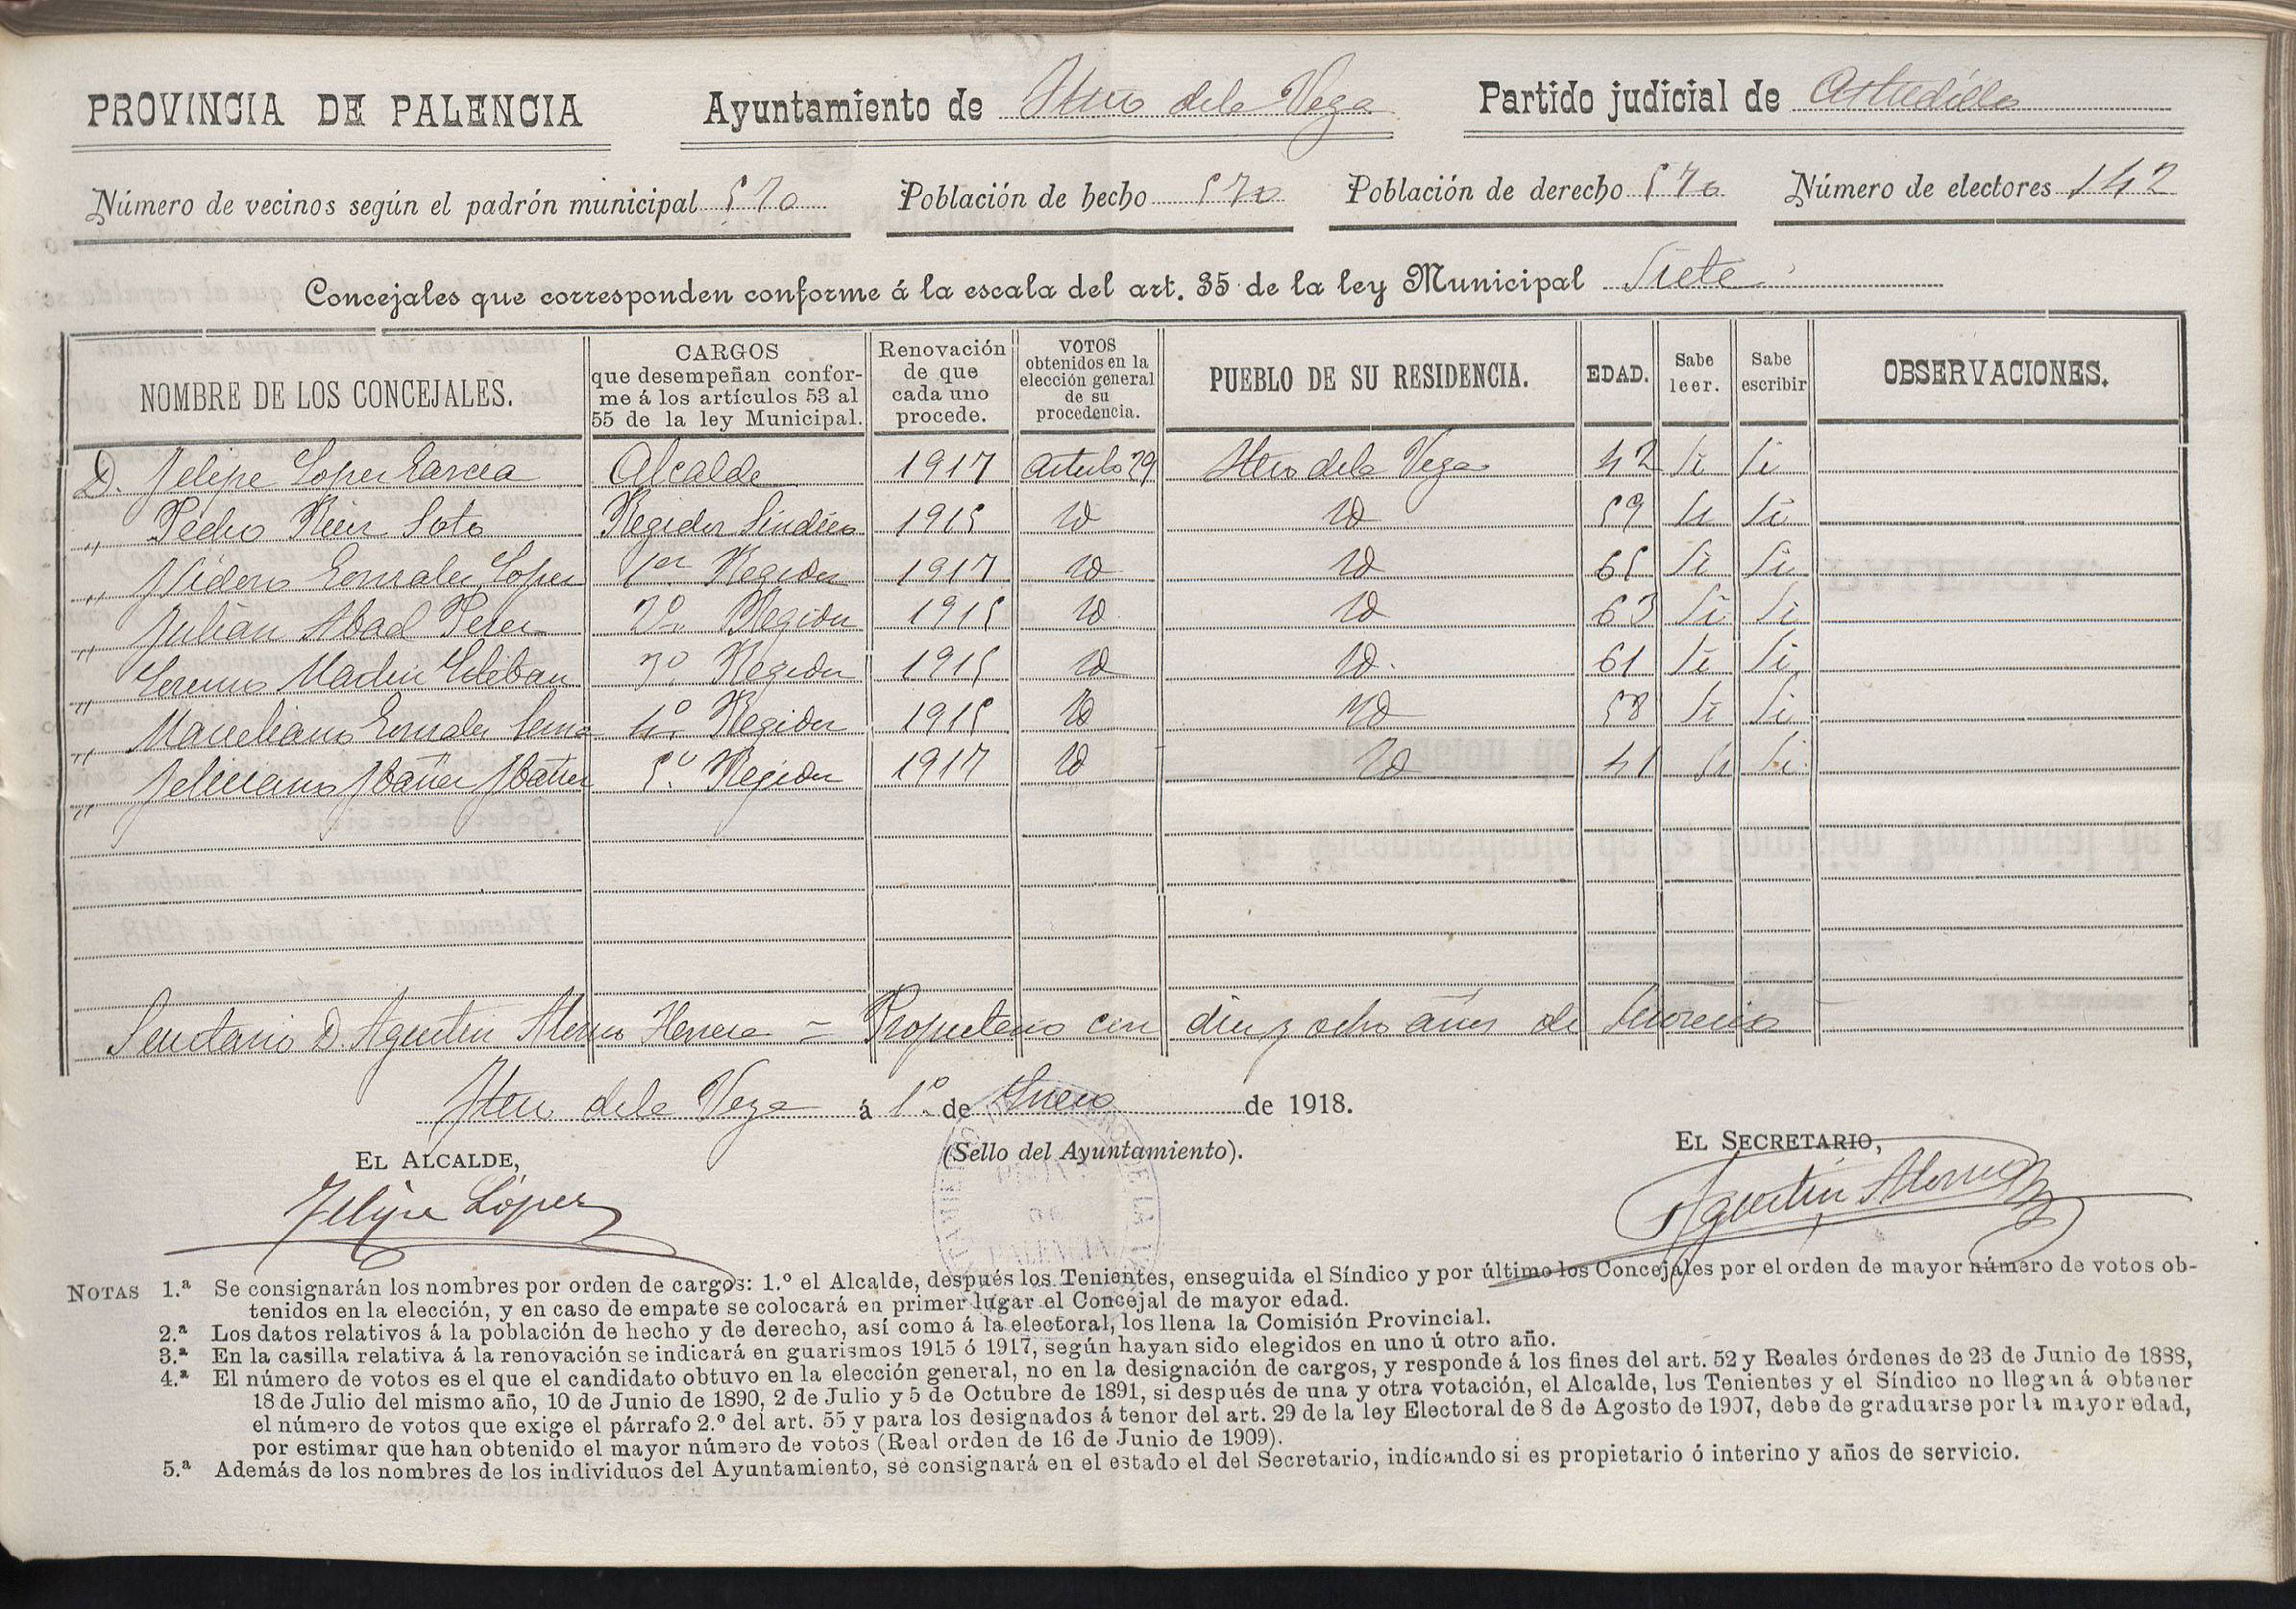 PROVINCIA DE PALENCIA Ayuntamiento de Itero dela Vega Partido judicial de Astudillo
Número de vecinos según el padrón municipal 570 Población de hecho 570 Población de derecho 570 Número de electores 142
Concejales que corresponden conforme á la escala del art. 35 de la ley Municipal Siete
NOMBRE DE LOS CONCEJALES. CARGOS que desempeñan conforme á los artículos 53 al 55 de la ley Municipal. Renovación de que cada uno procede. VOTOS obtenidos en la elección general de su procedencia. PUEBLO DE SU RESIDENCIA. EDAD. Sabe leer. Sabe escribir OBSERVACIONES.
D. Felipe Lopez Garcia Alcalde 1917 Articulo 29 Itero dela Vega 42 Si Si
" Pedro Ruiz Soto Regidor Sindico 1915 Id Id 59 Si Si
" Isidoro Gonzalez Lopez 1er Regidor 1917 Id Id 65 Si Si
" Julián Abad Perez 2º Regidor 1915 Id Id 63 Si Si
" Martin Esteban 3º Regidor 1915 Id Id. 61 Si Si
" Marceliano Gonzalez 4º Regidor 1915 Id Id 58 Si Si
" Feliciano Ibañez Ibañez 5º Regidor 1917 Id Id 41 Si Si
Secretario D. Agustin Alonso Herrera = Propietario con diez y ocho años de servicio
Itero dela Vega á 1º de Enero de 1918.
EL ALCALDE, (Sello del Ayuntamiento). EL SECRETARIO,
Felipe López Agustin Alonso
PALENCIA
NOTAS 1.ª Se consignarán los nombres por orden de cargos: 1.º el Alcalde, después los Tenientes, enseguida el Síndico y por último los Concejales por el orden de mayor número de votos ob-
tenidos en la elección, y en caso de empate se colocará en primer lugar el Concejal de mayor edad.
2.ª Los datos relativos á la población de hecho y de derecho, así como á la electoral, los llena la Comisión Provincial.
3.ª En la casilla relativa á la renovación se indicará en guarismos 1915 ó 1917, según hayan sido elegidos en uno ú otro año.
4.ª El número de votos es el que el candidato obtuvo en la elección general, no en la designación de cargos, y responde á los fines del art. 52 y Reales órdenes de 23 de Junio de 1888,
18 de Julio del mismo año, 10 de Junio de 1890, 2 de Julio y 5 de Octubre de 1891, si después de una y otra votación, el Alcalde, los Tenientes y el Síndico no llegan á obtener
el número de votos que exige el párrafo 2.º del art. 55 y para los designados á tenor del art. 29 de la ley Electoral de 8 de Agosto de 1907, debe de graduarse por la mayor edad,
por estimar que han obtenido el mayor número de votos (Real orden de 16 de Junio de 1909).
5.ª Además de los nombres de los individuos del Ayuntamiento, se consignará en el estado el del Secretario, indicando si es propietario ó interino y años de servicio.